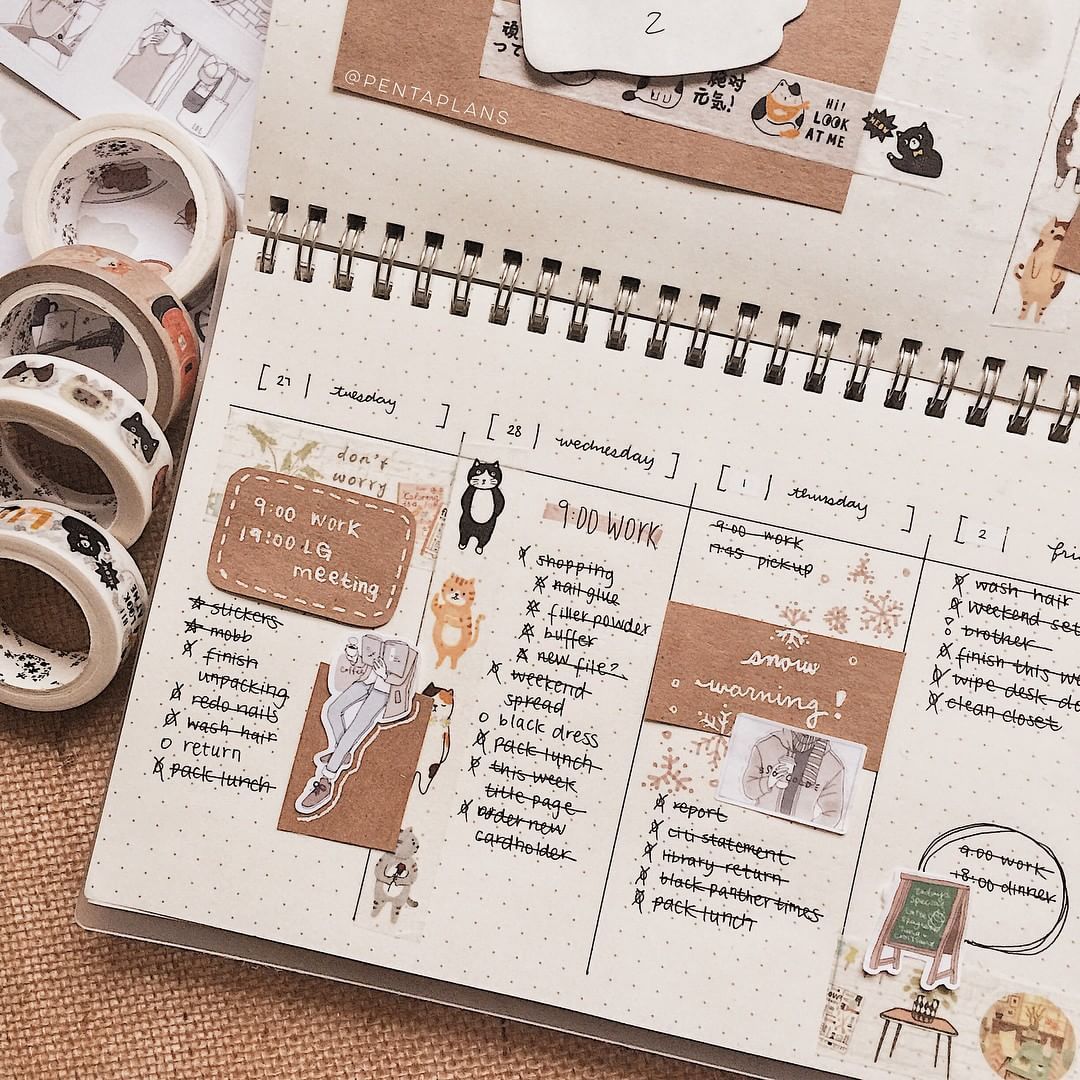 2
@PENTAPLANS
頑
って
絶対
元気!
Hi!
LOOK
AT ME
[ 27 | tuesday ]
don't
worry
9:00 work
19:00 LG
meeting
stickers
mobb
finish
unpacking
redo nails
wash hair
return
pack lunch
coffee
[ 28 | wednesday ]
9:00 WORK
shopping
nail glue
filler powder
buffer
new file?
weekend
spread
black dress
pack lunch
this week
title page
order new
cardholder
[ 1 | thursday ]
9:00 work
17:45 pickup
snow
warning!
report
citi statement
library return
black panther times
pack lunch
[ 2 | fri
wash hair
weekend set
brother
finish this we
wipe desk do
clean closet
9:00 work
18:00 dinner
today's
special